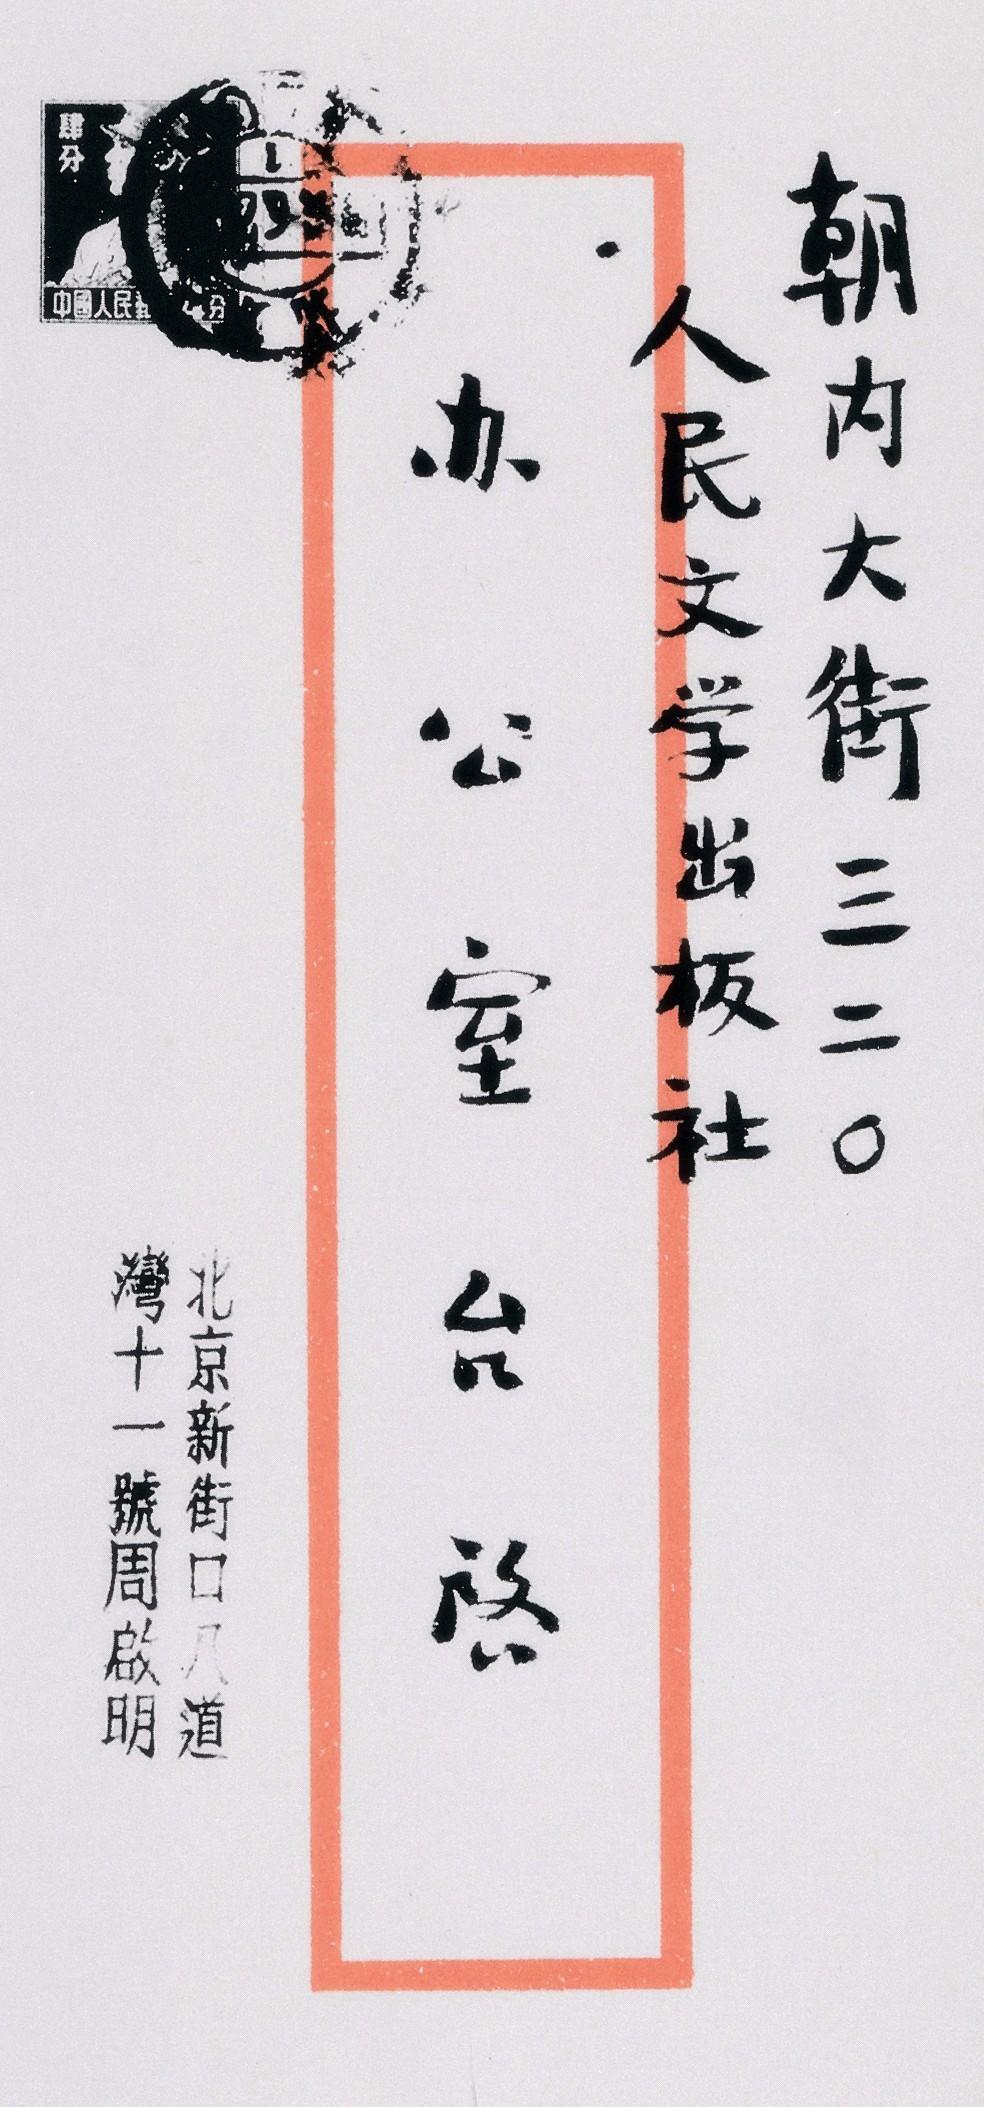 朝内大街三二〇
人民文学出板社
办公室台啓
北京新街口八道
灣十一號周啟明
肆分
中國人民
分